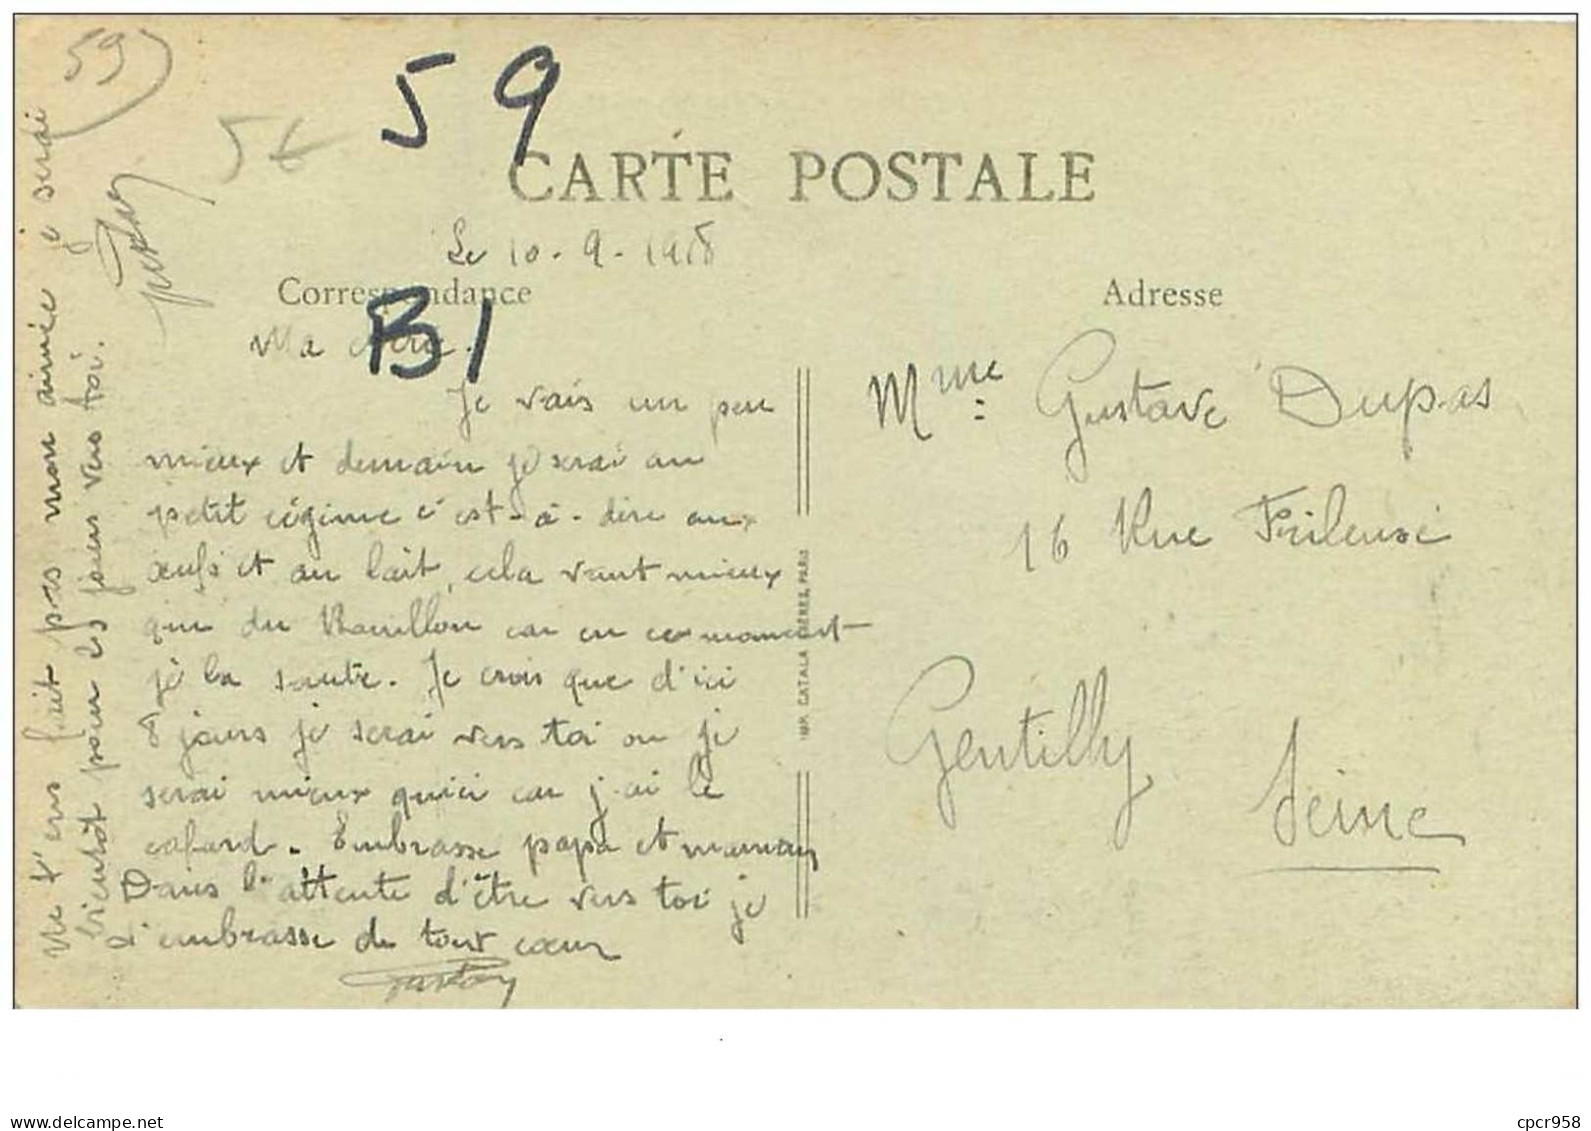 59
5€
59
CARTE POSTALE
Le 10-9-1918
Correspondance
B1
Adresse
Ma chérie.
Je vais un peu
mieux et demain je serai au
petit régime c'est-à-dire aux
œufs et au lait, cela vaut mieux
que du Bouillon car en ce moment
je la saute. Je crois que d'ici
8 jours je serai vers toi ou je
serai mieux qu'ici car j'ai le
cafard. Embrasse papa et maman
Dans l'attente d'être vers toi je
t'embrasse de tout cœur
Gaston
Ne t'en fait pas mon aimée je serai
bientôt pour les jours vers toi.
Gaston
Mme Gustave Dupas
16 Rue Frileuse
Gentilly
Seine
IMP. CATALA FRERES, PARIS
delcampe.net
cpcr958